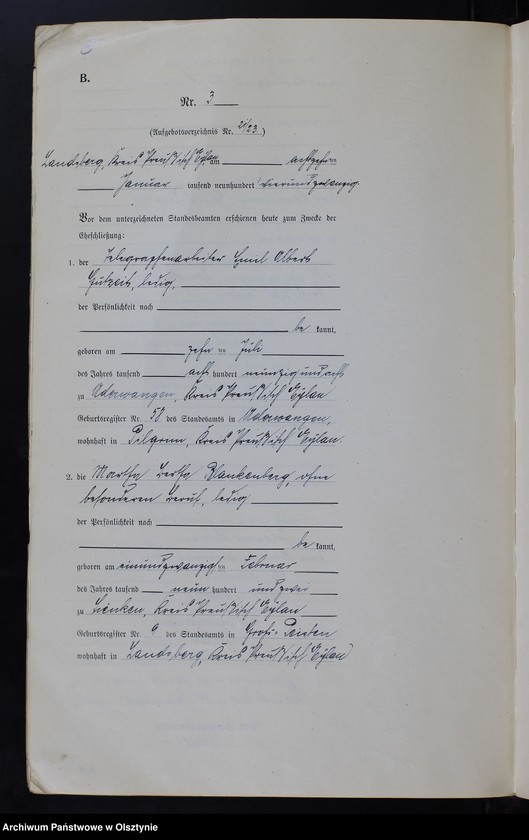 B.
Nr. 3
(Aufgebotsverzeichnis Nr. 21/23)
Landsberg, Kreis Preußisch Eylau am achtzehn
Januar tausend neunhundert vierundzwanzig.
Vor dem unterzeichneten Standesbeamten erschienen heute zum Zwecke der
Eheschließung:
1. der Telegraphenarbeiter Emil Albert
Gutzeit, ledig,
der Persönlichkeit nach
be kannt,
geboren am zehn ten Juli
des Jahres tausend acht hundert neunzig und acht
zu Uderwangen, Kreis Preußisch Eylau
Geburtsregister Nr. 58 des Standesamts in Uderwangen,
wohnhaft in Pilgrim, Kreis Preußisch Eylau.
2. die Martha Bertha Blankenberg, ohne
besonderen Beruf, ledig
der Persönlichkeit nach
be kannt,
geboren am einundzwanzigsten Februar
des Jahres tausend neun hundert und zwei
zu Kreis Preußisch Eylau
Geburtsregister Nr. 9 des Standesamts in Groß-Peisten
wohnhaft in Landsberg, Kreis Preußisch Eylau
Archiwum Państwowe w Olsztynie